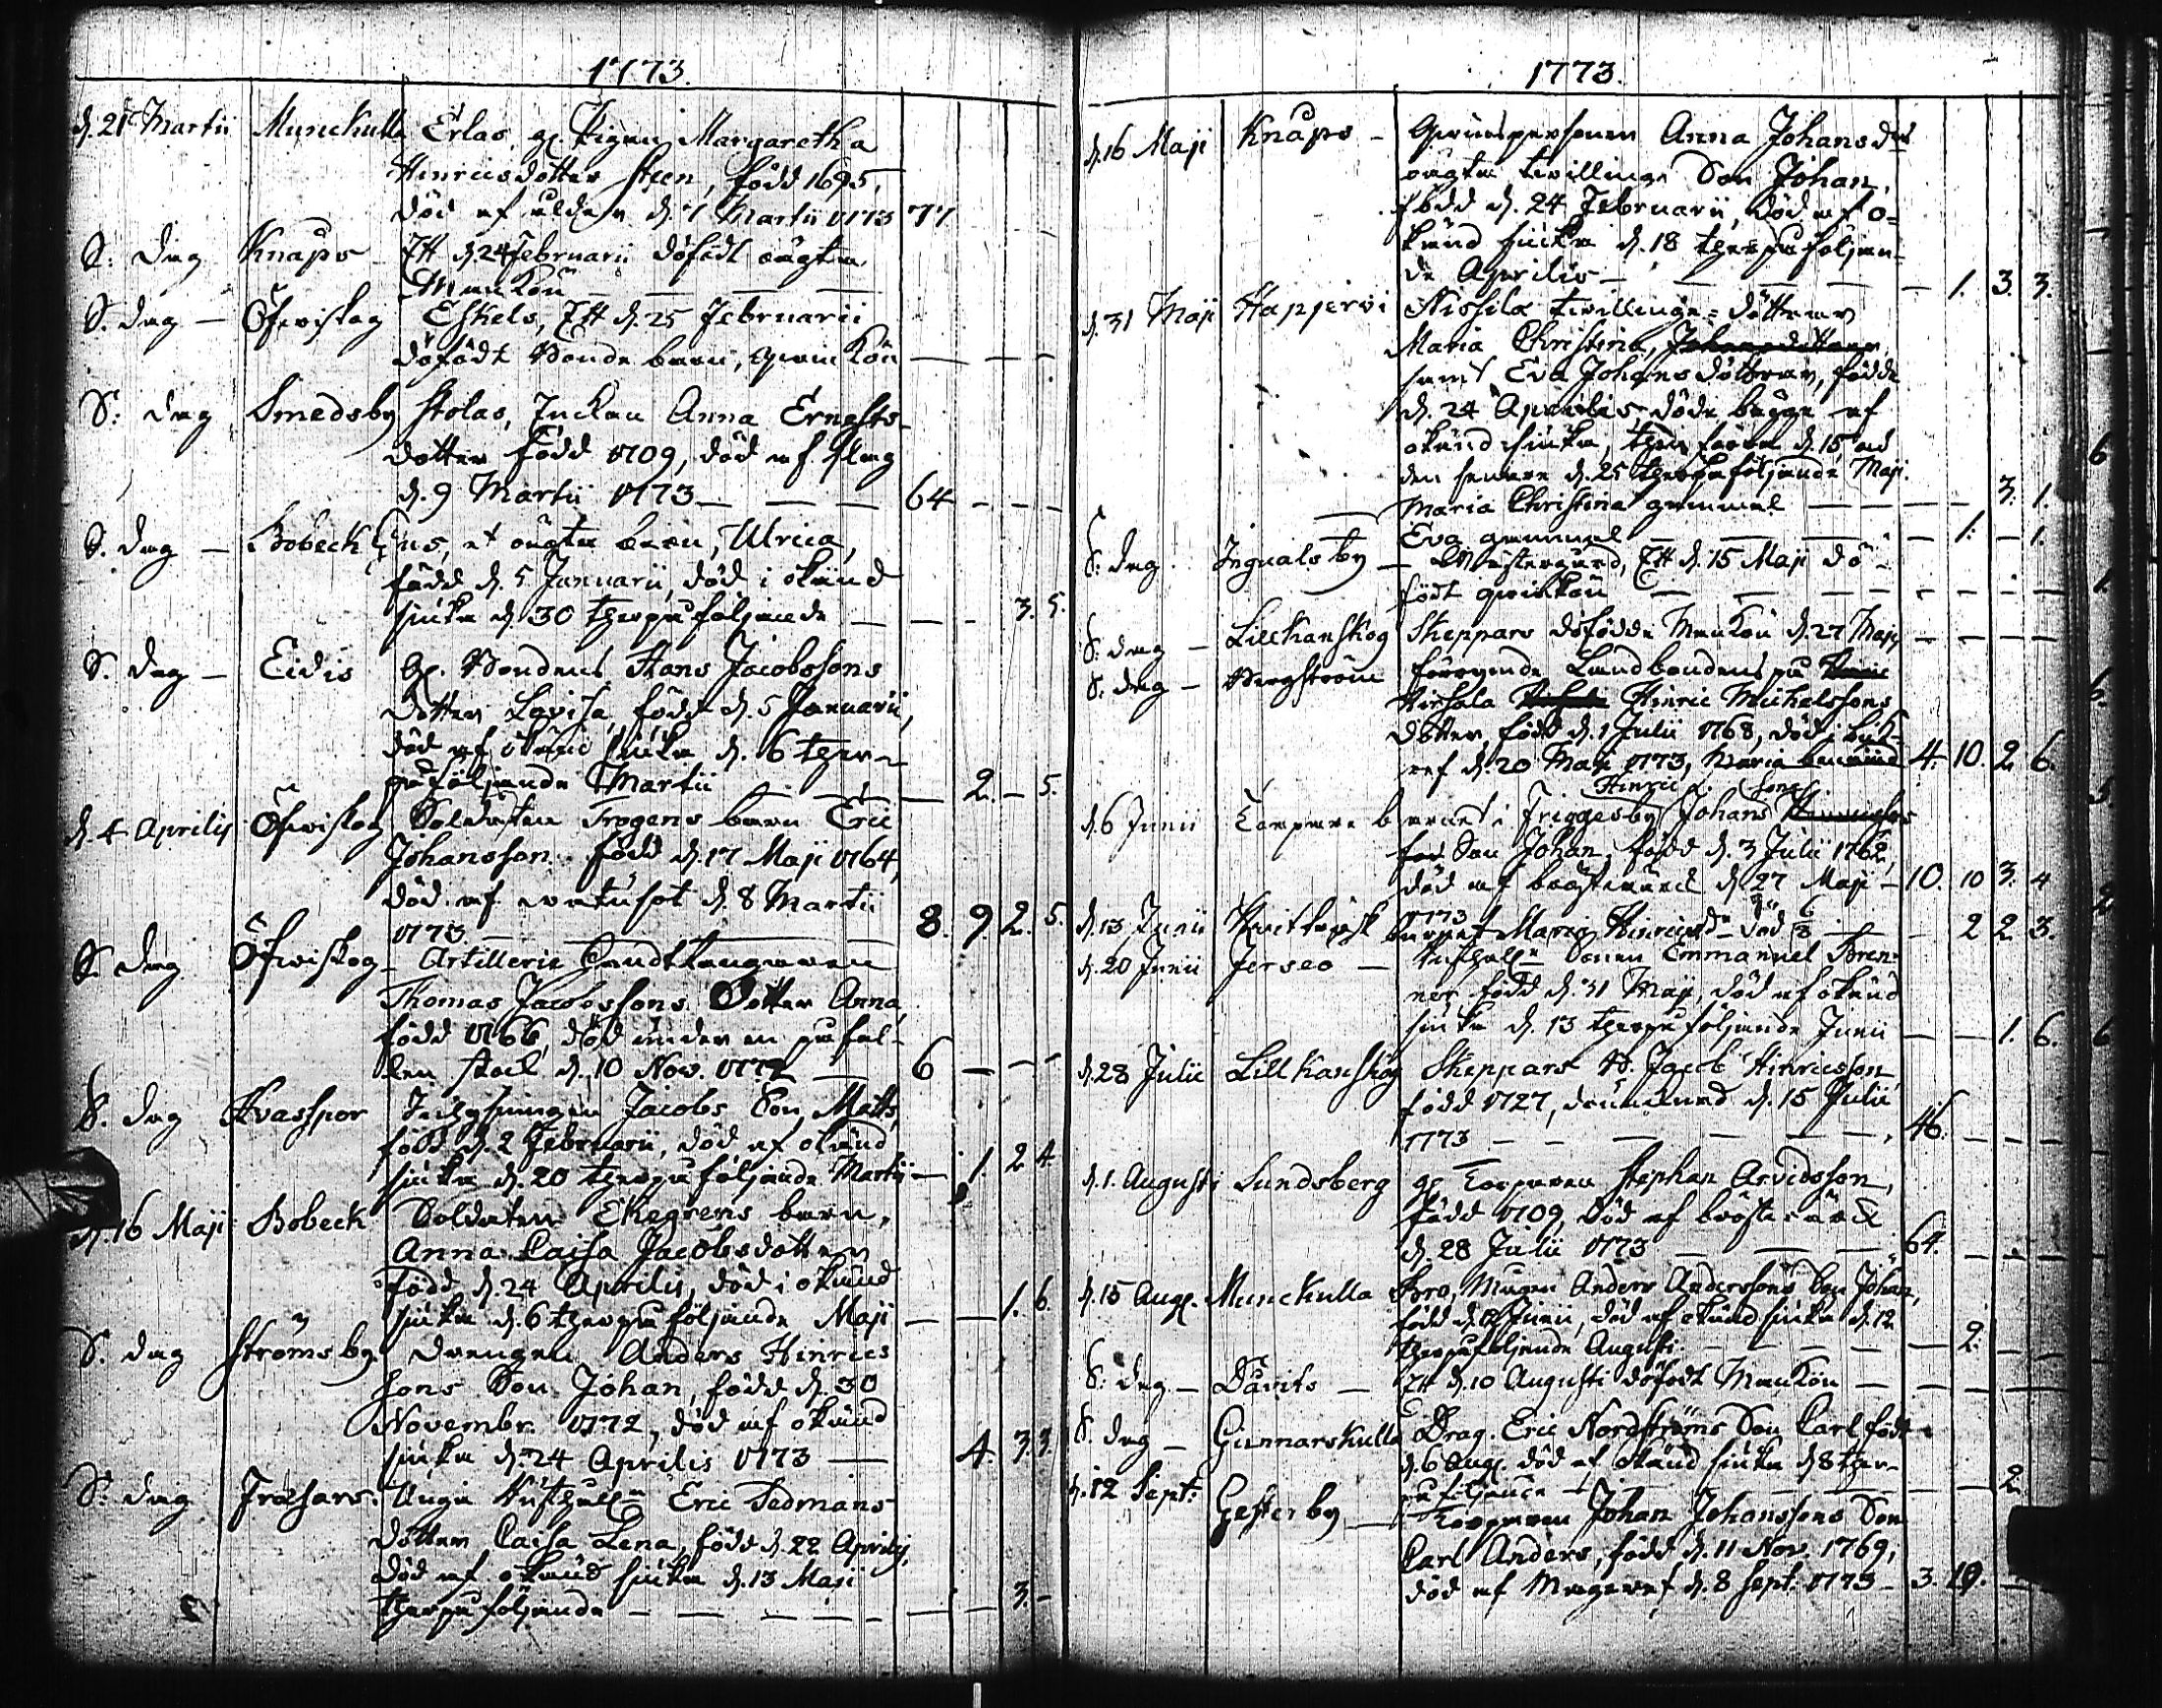 1773.
d. 21 Martii Munckulla Erlas, gl. Pigan Margaretha
Hinricsdotter Steen, född 1695,
död af ålder d. 7 Martii 1773 77
S. dag Knaps Ett d. 24 Februarii dödfödt oägta
Mankön
S. dag Öfwerskog Eskels, Ett d. 25 Februarii
dödfödt Bonde barn, qwinkön
S. dag Smedsby Stolas, Enkan Anna Ernests-
dotter född 1709, död af slag
d. 9 Martii 1773 64
S. dag Bobeck ett oägta barn, Ulrica,
född d. 5 Januarii, död i okänd
siuka d. 30 therpåföljande 3. 5.
S. dag Eidis Bondens Hans Jacobssons
dotter Lovisa, född d. 5 Januarii,
död af okänd siuka d. 6 ther-
påföljande Martii 2. 5.
d. 4 Aprilis Öfwerskog Soldaten Trogens barn Eric
Johansson född d. 17 Maji 1764,
död af d. 8 Martii
1773 8. 9. 2. 5.
S. dag Öfwerskog Artillerie Handtlangaren
Thomas Jacobssons Dotter Anna,
född 1766, död under en påfal-
len stock d. 10 Nov. 1772 6
S. dag Kvasspor Jacobs Son Matts,
född d. 2 Februarii, död af okänd
siuka d. 20 therpåföljande Martii 1. 2. 4.
d. 16 Maji Bobeck Soldaten Ekegrens barn,
Anna Caisa Jacobsdotter
född d. 24 Aprilis, död i okänd
siuka d. 6 therpåföljande Maji 1. 6.
S. dag Strömsby Drengen Anders Hinrics
sons Son Johan, född d. 30
Novembr. 1772, död af okänd
siuka d. 24 Aprilis 1773 4. 3. 3.
S. dag Fräsars Unga Rusthåll. Eric Sedmans
dotter Caisa Lena, född d. 22 Aprilis,
död af okänd siuka d. 13 Maji
therpåföljande 3.
1773.
d. 16 Maji Knaps Qwinspersonen Anna Johansdr
oägta tvillinge Son Johan,
född d. 24 Februarii, död af o=
känd siuka d. 18 therpåföljan=
de Aprilis 1. 3. 3.
d. 31 Maji Happjervi Nissila tvillinge=döttrar
Maria Christina,
samt Eva Johansdöttrar, födde
d. 24 Aprilis döde begge af
okänd siuka, then förra d. 15 och
den senare d. 25 therpåföljande Maji.
Maria Christina gammal 3. 1.
Eva gammal 1. 1.
S. dag Ingvalsby Westergård, Ett d. 15 Maji död-
födt qwinkön
S. dag Lillkanskog Skeppars dödfödde Mankön d. 27 Maji
S. dag Bergström förrvarande Landbondens på
Hirsala Hinric Michelssons
dotter, född d. 1 Julii 1768, död i
d. 20 Maji 1773, Maria benämnd 4. 10. 2. 6.
Hinrics Sons
d. 6 Junii Torpare barnet i Friggesby Johans
Son Johan, född d. 3 Julii 1762,
död af bröstvärck d. 27 Maji 10. 10 3. 4
1773
d. 13 Junii Kvitträsk barnet Maria Hinricsdr död 2 2. 3.
d. 20 Junii Jerseo Rusthåll. Sonen Emmanuel Bren-
ner född d. 31 Maji, död af okänd
siuka d. 13 therpåföljande Junii 1. 6.
d. 28 Julii Lillkanskog Skeppars B. Jacob Hinricsson
född 1727, drunknad d. 15 Julii
1773 46.
d. 1. Augusti Sundsberg gl. Torparen Stephan Arvidsson,
född 1709, död af bröstvärck
d. 28 Julii 1773 64.
d. 15 Aug. Munckulla Bro, Mågen Anders Anderssons Son Johan,
född d. 12 Junii, död af okänd siuka d. 12
therpåföljande Augusti 2.
S. dag Davits Ett d. 10 Augusti dödfödt Mankön
S. dag Gunnarskulla Drag. Eric Nordströms Son Carl född
d. 6 Aug. död af okänd siuka d. 8 ther-
påföljande 2
d. 12 Sept. Gesterby Torparen Johan Johanssons Son
Carl Anders, född d. 11 Nov. 1769,
död af Magref d. 8 Sept. 1773 3. 10.